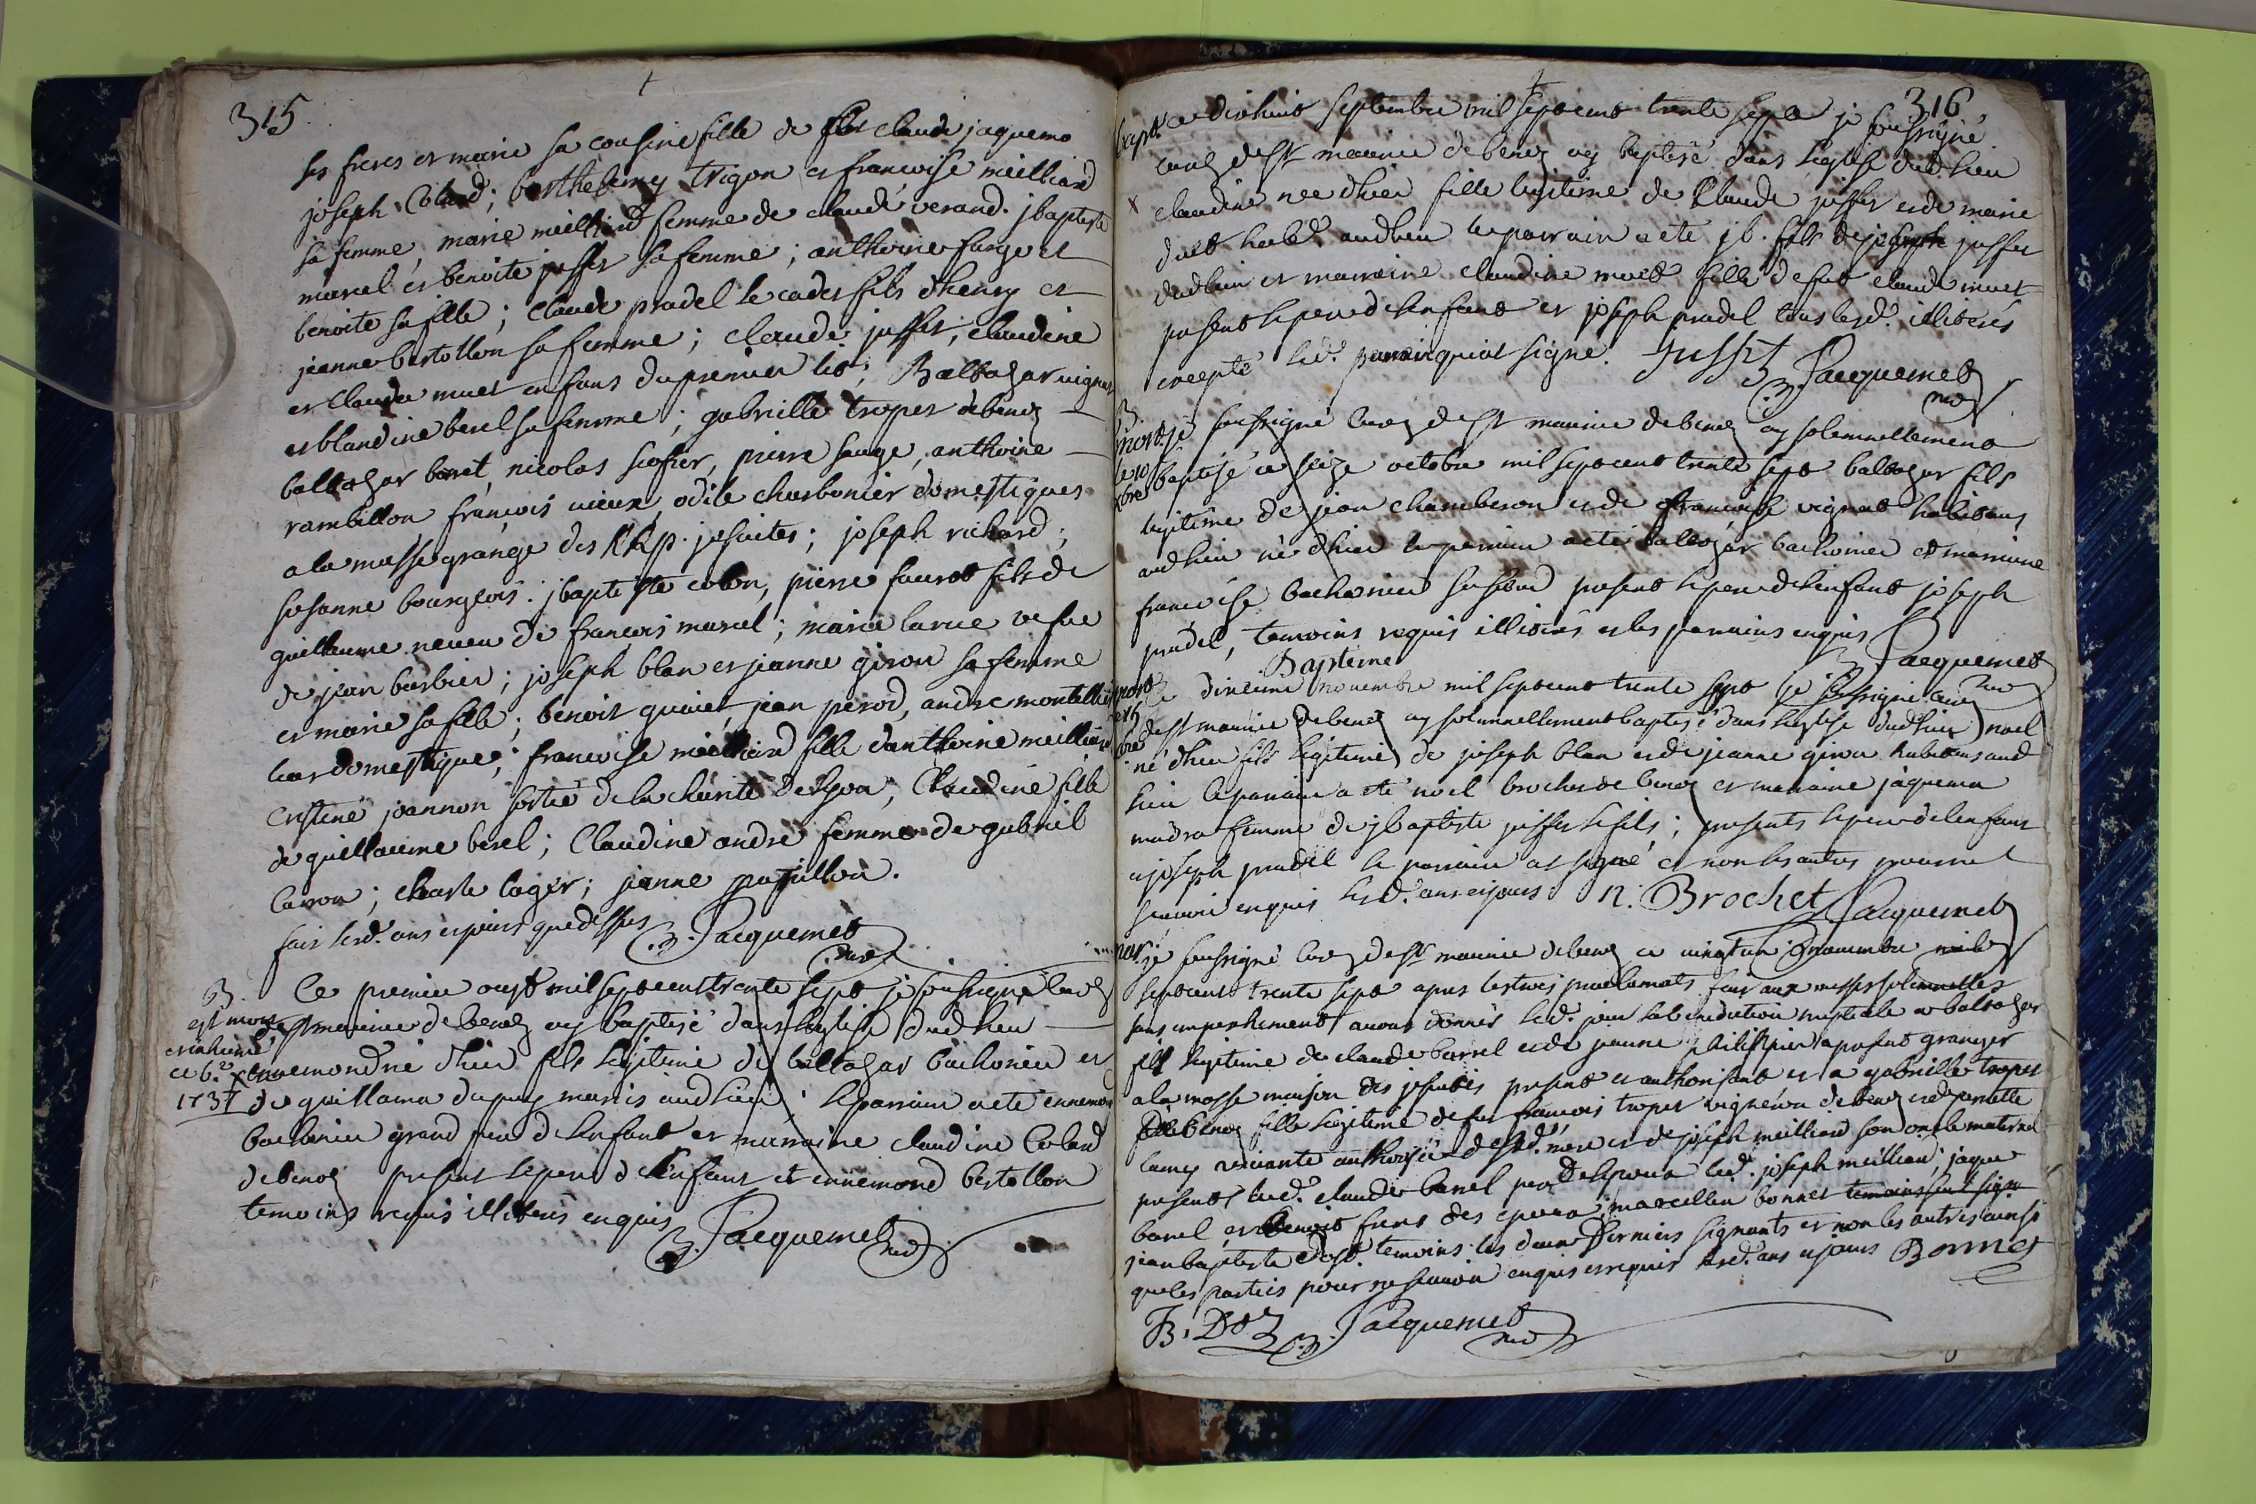 315
ses freres et marie sa cousine fille de feu claude jaquemo
joseph Coland; barthelemy trigon et francoise meilliard
sa femme, marie meilliard femme de claude verand. jbaptiste
marcel et benoite jusser sa femme; anthoine farge et
benoite sa fille; claude pradel le cadet fils dhenry et
jeanne bertollon sa femme; claude jusser, claudine
et claude muet enfans du premier lit; Baltazar vignat
et blandine berel sa femme; gabrielle troper de benez
baltazar baret, nicolas, pierre sauge, anthoine
rambillon françois vieux, odile charbonier domestiques
a la masse grange des RRp. jesuites; joseph richard;
susanne bourgeois. jbaptiste colon, pierre faurot fils de
guillaume neveu de francois marcel; marie larue vefve
de jean barbier; joseph blan et jeanne giron sa femme
et marie sa fille; benoit quivet, jean perod, andre
leur domestique; francoise meilliard fille danthoine meilliard
cristine joannon sortie de la charité de lyon; Claudine fille
de guillaume berel; Claudine andre femme de gabriel
caron; charle loger; janne papillon.
fait lesd. ans et jours que dessus B. Jacquemet
curé
B.
est mort
et inhumé
ce 6.e
1737
Ce premier aoust mil sept cens trente sept je soussigné curé
de st maurice de benez ay baptisé dans leglise dud lieu
ennemond né dhier fils legitime de baltazar bachonier et
de guillama dupuy mariés aud lieu; le parrain a eté ennemond
bachonier grand pere de lenfant et marraine claudine Coland
de benez present le pere de lenfant et ennemond bertollon
temoins requis illiterés enquis B. Jacquemet curé
316
bapt. ce dixhuit septembre mil sept cent trente sept je soussigné
curé de st maurice de benez ay baptisé dans leglise dud lieu
claudine née dhier fille legitime de Claude jusser et de marie
habt. aud lieu le parrain a eté jb. fils de joseph jusser
dud lieu et marraine claudine muet fille de feu claude muet
present le pere de lenfant et joseph pradel tous lesd. illiterés
excepté led. parrain qui at signé. Jusser
B. Jacquemet
curé
B
mort
le 10
xbre
je soussigné curé de st maurice de benez ay solemnellement
baptisé ce seize octobre mil sept cent trente sept baltazar fils
legitime de jean chamberon et de francoise vignat habitans
aud lieu né dhier le parrain a eté baltazar bachonier et marraine
francoise bachonier present le pere de lenfant joseph
pradel, temoins requis illiterés et les parrains enquis Jacquemet
curé
Baptême
mort
novembre mil sept cent trente sept je soussigné curé
de st maurice de benez ay solemnellement baptisé dans leglise dud lieu noel
né dhier fils legitime de joseph blan et de jeanne giron habitans aud
lieu le parrain a eté noel brochet de benez et marraine jaquema
femme de jbaptiste jusser le fils; presents le pere de lenfant
et joseph pradel le parrain at signé et non les autres pour ne
scavoir enquis lesd. ans et jours n. Brochet Jacquemet
mar. je soussigné curé de st maurice de benez ce vingt un novembre mil
sept cent trente sept apres les trois proclamats fait aux messes solemnelles
sans empechement avons donnés led. jour la benediction nuptiale a baltazar
fils legitime de claude barrel et de jeanne a present granger
a la masse maison des jesuites present et authorisant et a gabrielle troper
de benez fille legitime de feu francois troper vigneron de benez et de pernette
lamy authorisée de sad. mere et de joseph meilliard son oncle maternel
presents led. claude barrel pere de lepoux led. joseph meilliard; jaque
barrel et benoit freres des epoux marcellin bonnet temoins
jean baptiste temoins les deux derniers signants et non les autres ainsi
que les parties pour ne scavoir enquis et requis lesd. ans et jours Bonnet
B. Jacquemet
curé